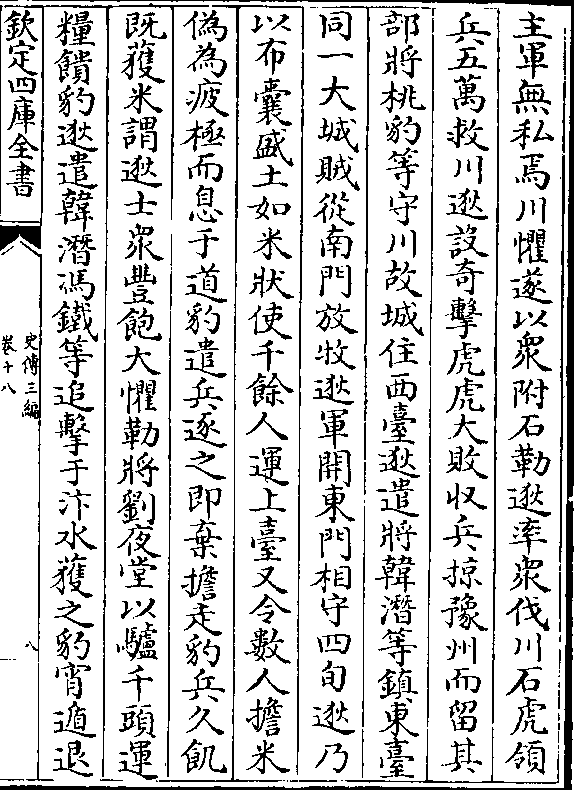 主軍無私焉川懼遂以衆附石勒逖率衆伐川石虎領
兵五萬救川逖設奇擊虎虎大敗収兵掠豫州而留其
部將桃豹等守川故城住西臺逖遣將韓潛等鎮東臺
同一大城賊從南門放牧逖軍開東門相守四旬逖乃
以布囊盛土如米狀使千餘人運上臺又令數人擔米
偽為疲極而息于道豹遣兵逐之即棄擔走豹兵久飢
既獲米謂逖士衆豐飽大懼勒將劉夜堂以驢千頭運
糧饋豹逖遣韓潛馮鐵等追擊于汴水獲之豹宵遁退
欽定四庫全書
史傳三編
卷十八
八